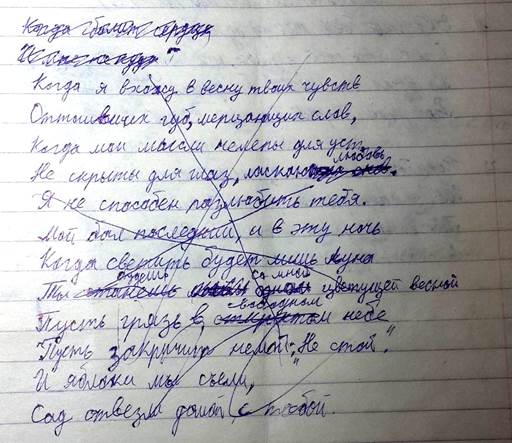 Когда болит сердце
Когда я вхожу в весну твоих чувств
Оттаявших губ, мерцающих слов,
Когда мои мысли нелепы для уст,
Не скрыты для глаз, любовь
Я не способен разлюбить тебя.
Мой бал последний, и в эту ночь
Когда светить будет лишь луна
Ты со мной цветущей весной
Пусть грязь в свободном небе
"Пусть закричит немой: "Не стой".
И яблоки мы съели,
Сад отвезли домой с тобой.